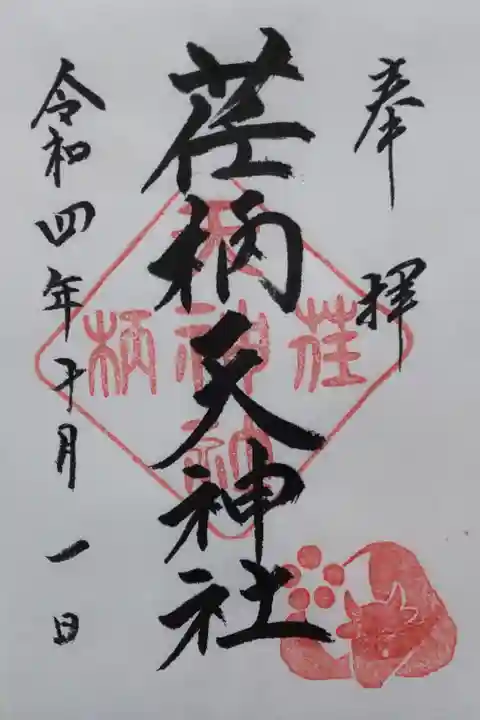 奉拝
荏柄天神社
令和四年十月一日
荏柄天神社